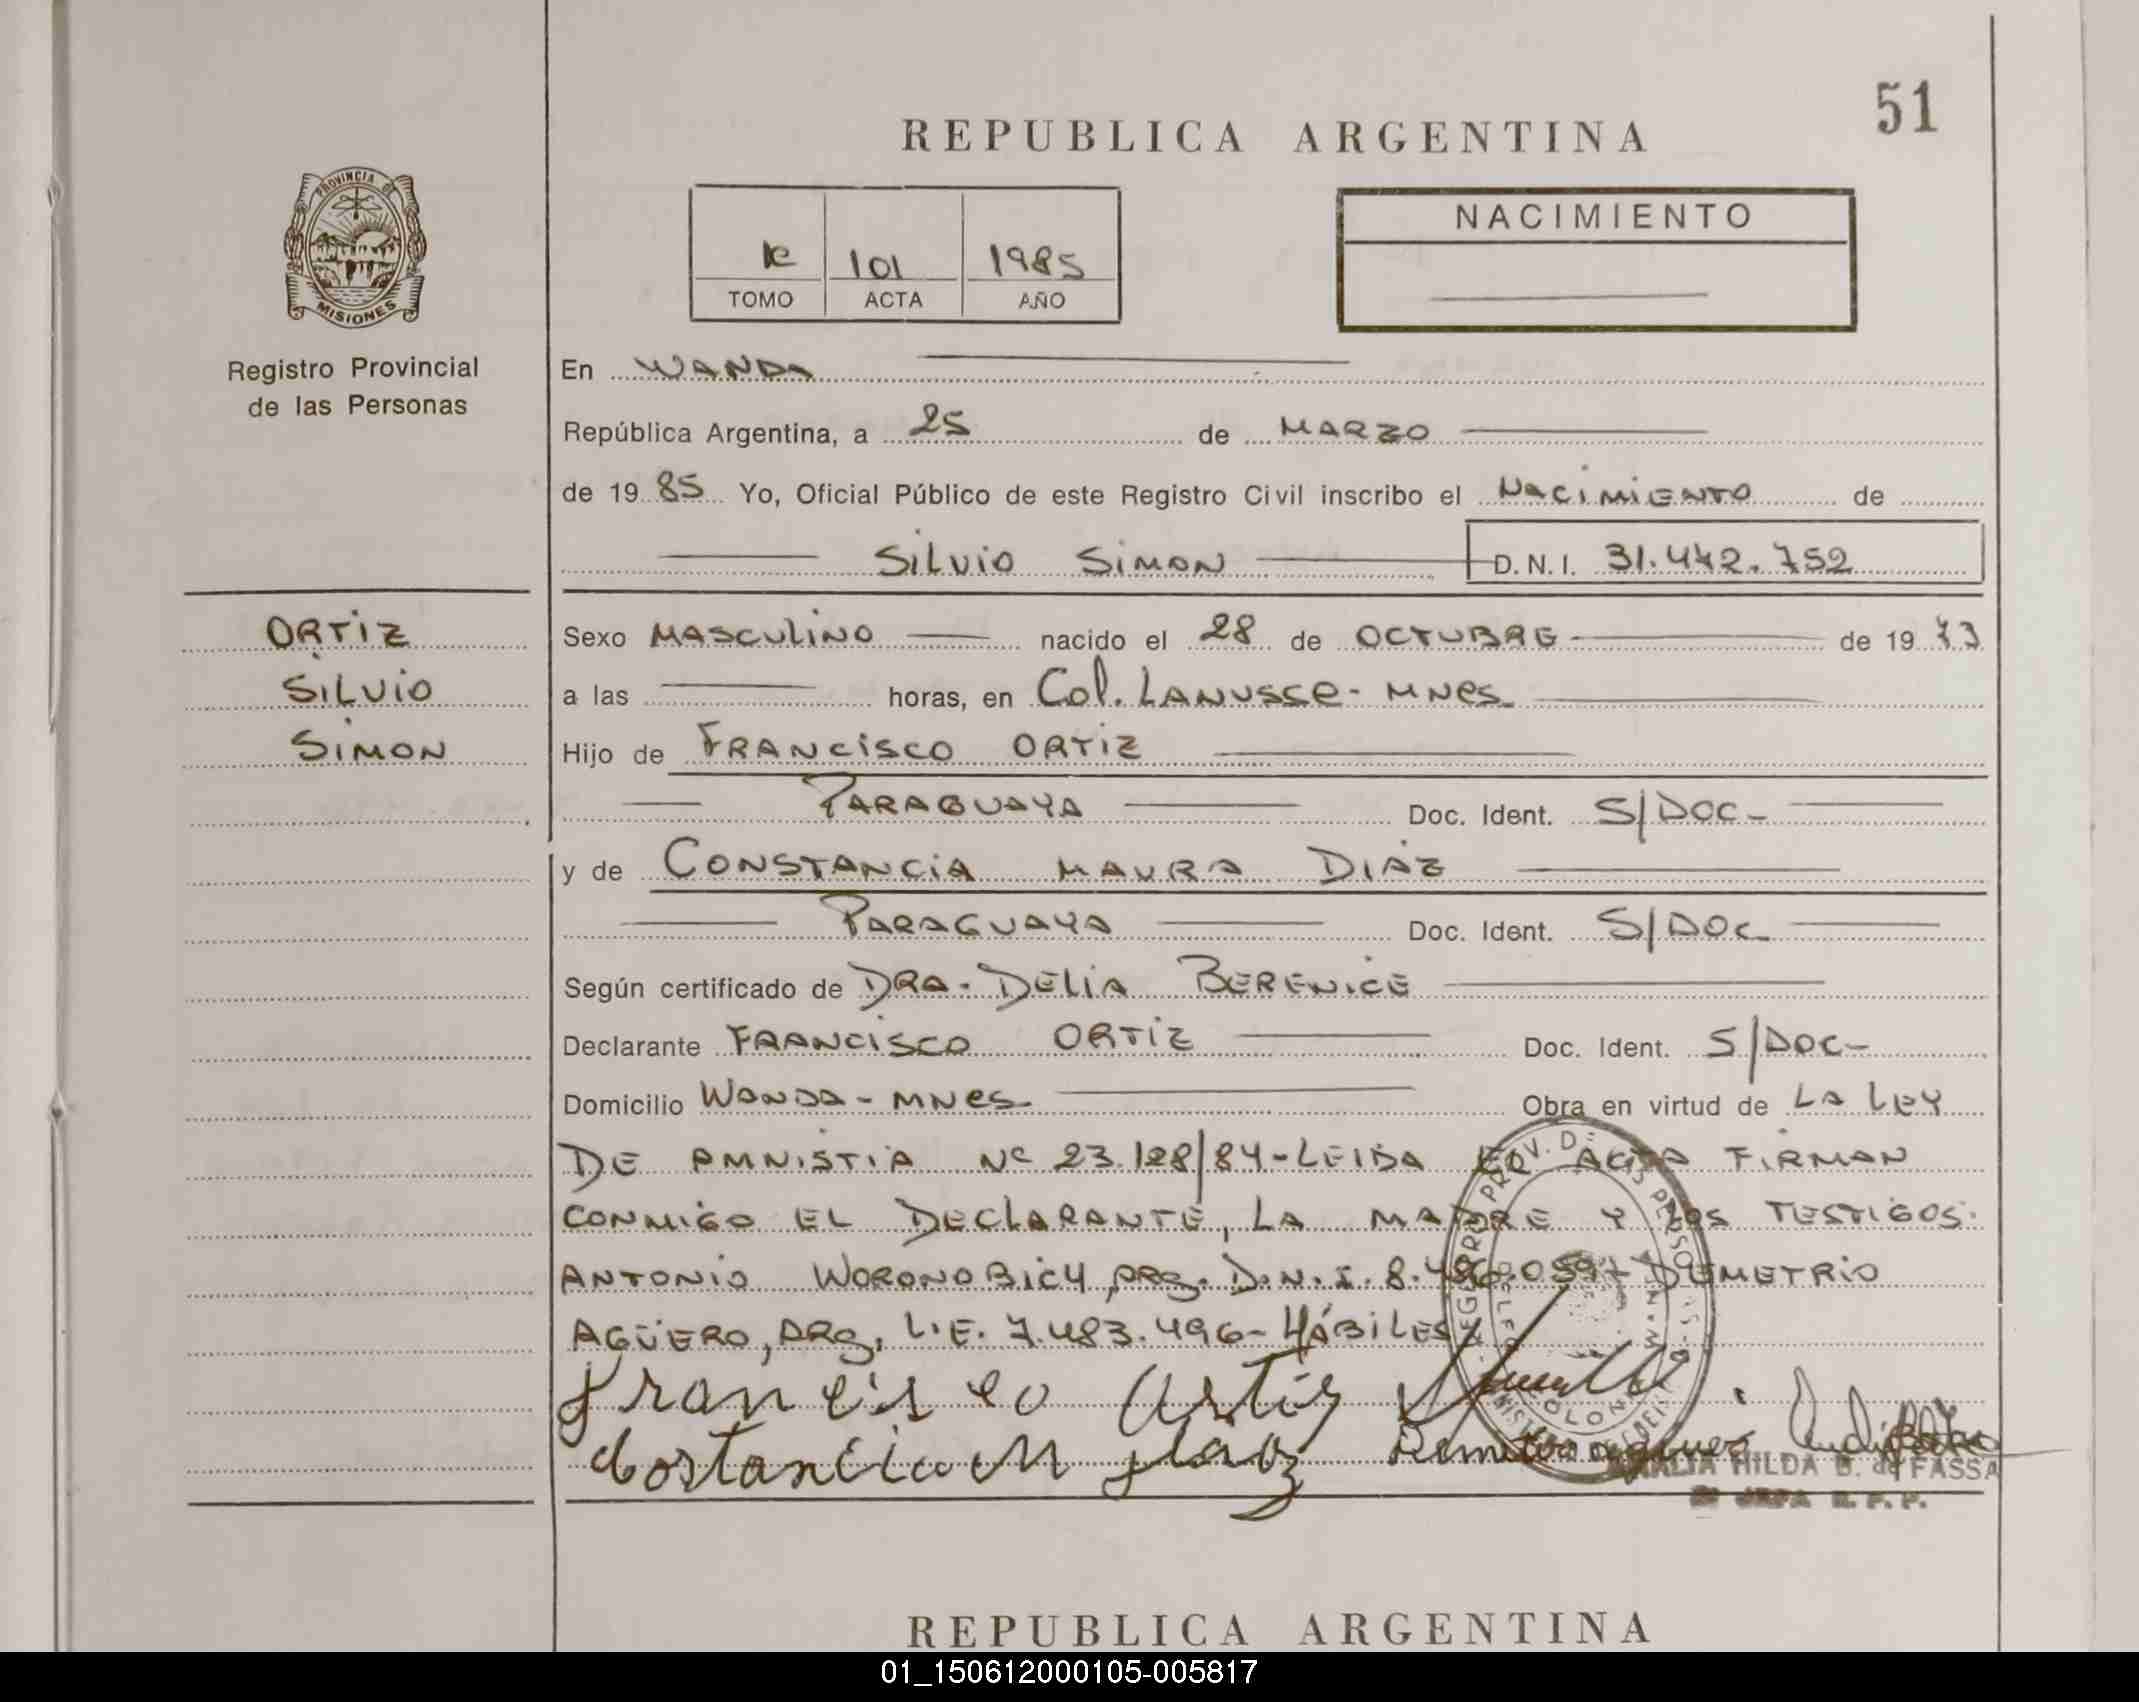 51
REPUBLICA ARGENTINA
PROVINCIA DE
MISIONES
Registro Provincial
de las Personas
1e 101 1985
TOMO ACTA AÑO
NACIMIENTO
En WANDA
República Argentina, a 25 de MARZO
de 19 85 Yo, Oficial Público de este Registro Civil inscribo el NACIMIENTO de
SILVIO SIMON D.N.I. 31.442.752
ORTIZ
SILVIO
SIMON
Sexo MASCULINO nacido el 28 de OCTUBRE de 19 73
a las horas, en Col. LANUSSE - MNES
Hijo de FRANCISCO ORTIZ
PARAGUAYA Doc. Ident. S/DOC-
y de CONSTANCIA MAURA DIAZ
PARAGUAYA Doc. Ident. S/DOC
Según certificado de DRA. DELIA BERENICE
Declarante FRANCISCO ORTIZ Doc. Ident. S/DOC-
Domicilio WANDA - MNES Obra en virtud de LA LEY
DE AMNISTIA Nº 23.128/84-LEIDA EL ACTA FIRMAN
CONMIGO EL DECLARANTE, LA MADRE Y LOS TESTIGOS:
ANTONIO WORONOBICY, ARG. D.N.I. 8. DEMETRIO
AGÜERO, ARG. L.E. 7.483.496- HÁBILES
Francisco Ortiz
Costancia M Diaz
HILDA B. de FASSA
JEFA R. P. P.
REPUBLICA ARGENTINA
01_150612000105-005817